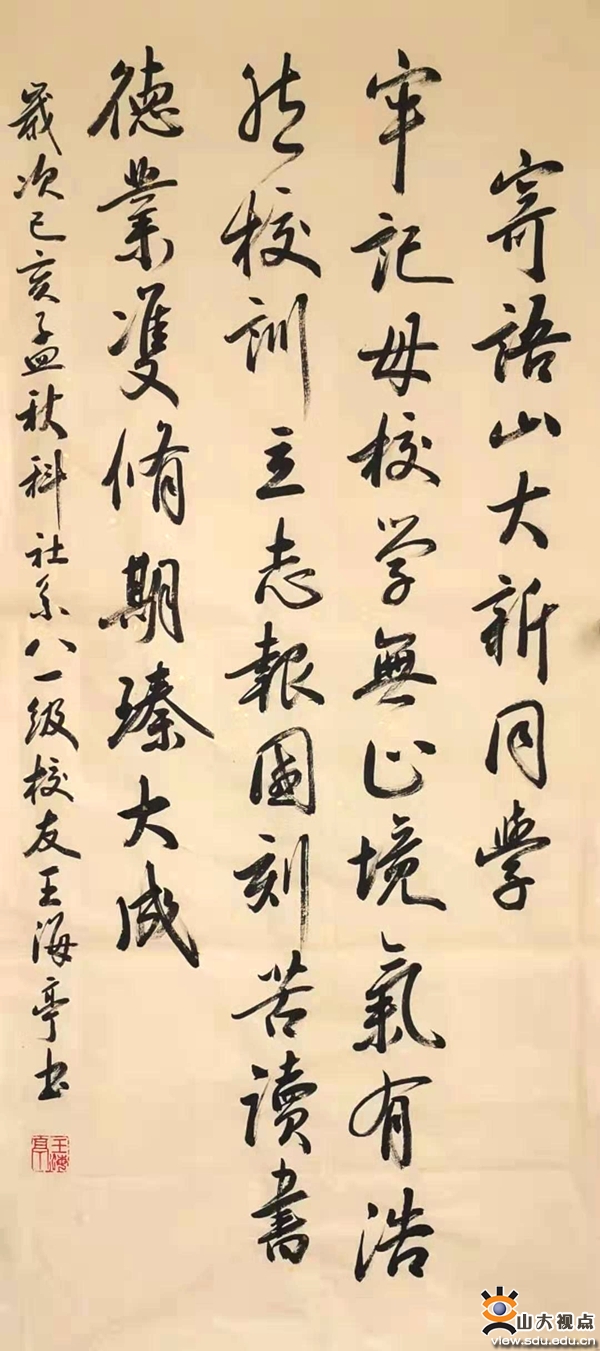 寄語山大新同學
牢记母校学無止境氣有浩
然校训立志報國刻苦讀書
德業雙脩期臻大成
歲次己亥孟秋科社系八一级校友王海亭书
王海亭
山大视点
www.view.sdu.edu.cn